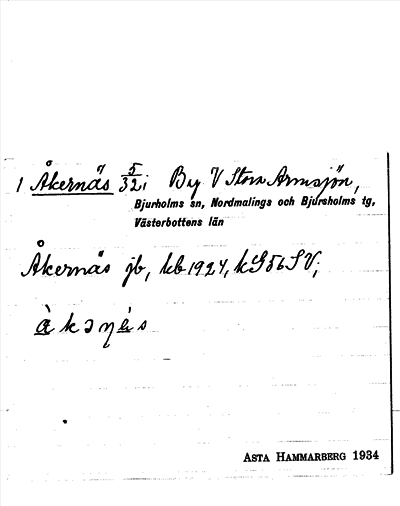 1 Åkernäs 5/32 i By V Stora Armsjön,
Bjurholms sn, Nordmalings och Bjurholms tg,
Västerbottens län
Åkernäs jb, kb 1924, kG 56 SV;
àkəṇès
ASTA HAMMARBERG 1934